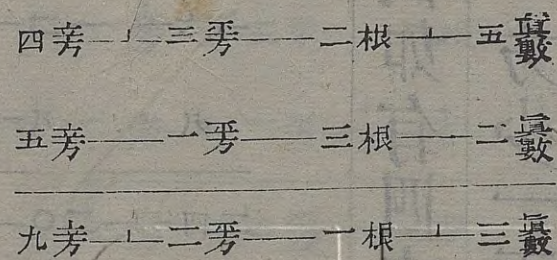 四立方—⊥—三平方——二根—⊥—五眞數
五立方———一平方——三根———二眞數
九立方—⊥—二平方——一根—⊥—三眞數